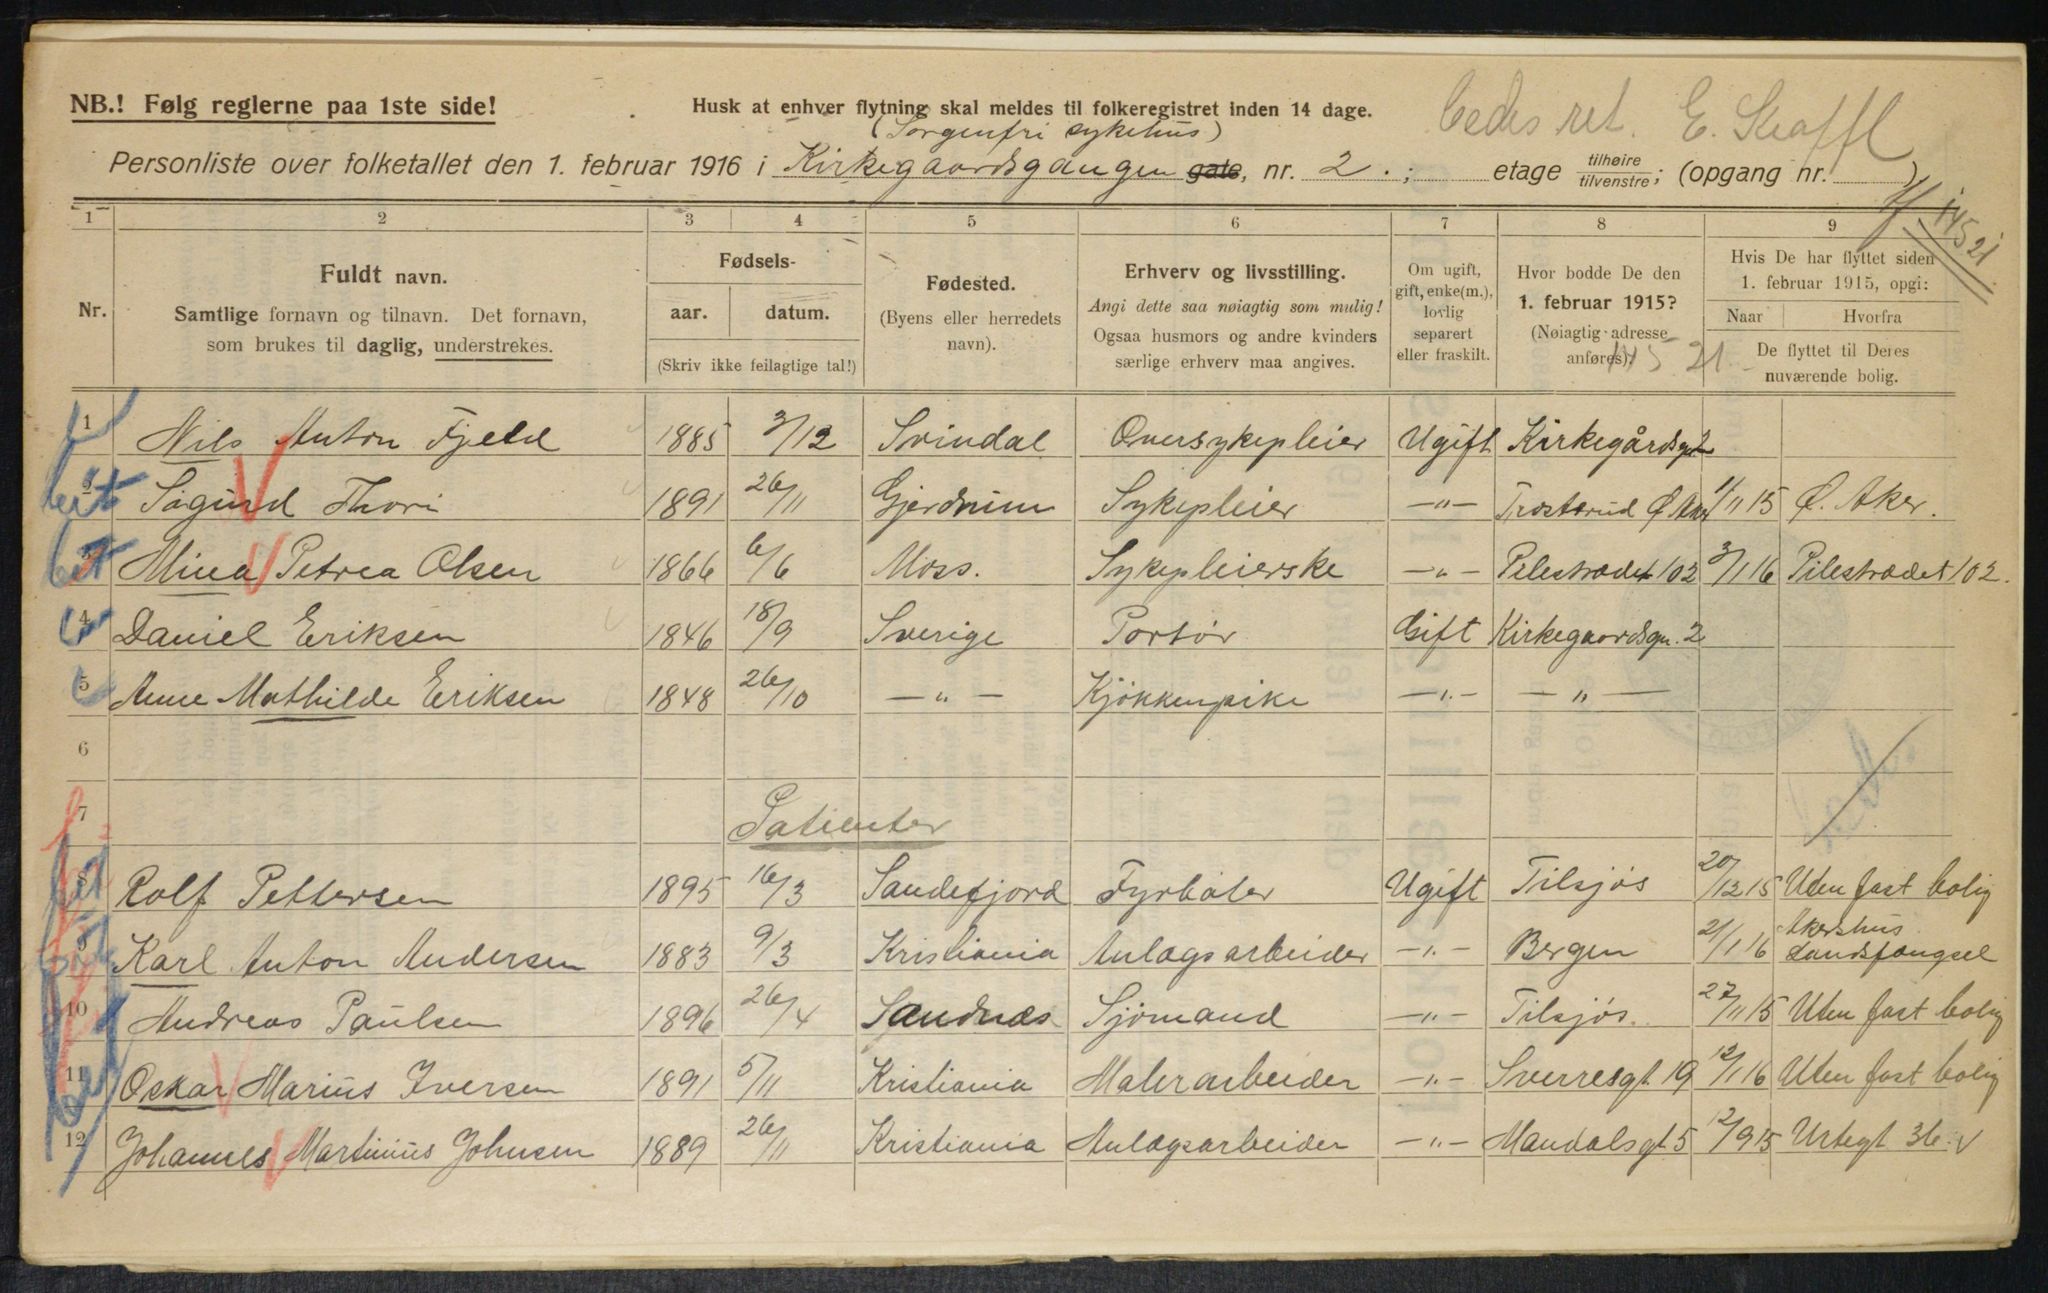 NB.! Følg reglerne paa 1ste side!
Husk at enhver flytning skal meldes til folkeregistret inden 14 dage.
E. Skaffl
(Sorgenfri sykehus)
Personliste over folketallet den 1. februar 1916 i Kirkegaardsgangen gate, nr. 2. ; etage tilhøire/tilvenstre; (opgang nr. )
14521
1 2 3 4 5 6 7 8 9
Nr.
Fuldt navn.
Samtlige fornavn og tilnavn. Det fornavn,
som brukes til daglig, understrekes.
Fødsels-
aar. datum.
(Skriv ikke feilagtige tal!)
Fødested.
(Byens eller herredets
navn).
Erhverv og livsstilling.
Angi dette saa nøiagtig som mulig!
Ogsaa husmors og andre kvinders
særlige erhverv maa angives.
Om ugift,
gift, enke(m.),
lovlig
separert
eller fraskilt.
Hvor bodde De den
1. februar 1915?
(Nøiagtig adresse
anføres).
145 21
Hvis De har flyttet siden
1. februar 1915, opgi:
Naar Hvorfra
De flyttet til Deres
nuværende bolig.
1 Nils Anton Fjeld 1885 3/12 Svindal Oversykepleier Ugift Kirkegårdsgt 2
2 Sigurd Thori 1891 26/11 Gjerdrum Sykepleier —"— Trosterud Ø. Aker 1/11 15 Ø. Aker.
3 Mina Petrea Olsen 1866 6/6 Moss. Sykepleierske —"— Pelestrædet 102 3/1 16 Pilestrædet 102.
4 Daniel Eriksen 1846 18/9 Sverige Portør Gift Kirkegaardsgn. 2
5 Anne Mathilde Eriksen 1848 26/10 —"— Kjøkkenpike —"— —"—
6
7 Patienter
8 Rolf Pettersen 1895 16/3 Sandefjord Fyrbøter Ugift Tilsjøs 20/12 15 Uten fast bolig
9 Karl Anton Andersen 1883 9/3 Kristiania Anlægsarbeider —"— Bergen 21/1 16 Akershus Landsfængsel
10 Andreas Paulsen 1896 26/4 Sandnæs Sjømand —"— Tilsjøs. 27/11 15 Uten fast bolig
11 Oskar Marius Iversen 1891 5/11 Kristiania Malerarbeider —"— Sverresgt. 19 12/1 16 Uten fast bolig
12 Johannes Martinius Johnsen 1889 26/11 Kristiania Anlægsarbeider —"— Mandalsgt 5 12/9 15 Urtegt 36.